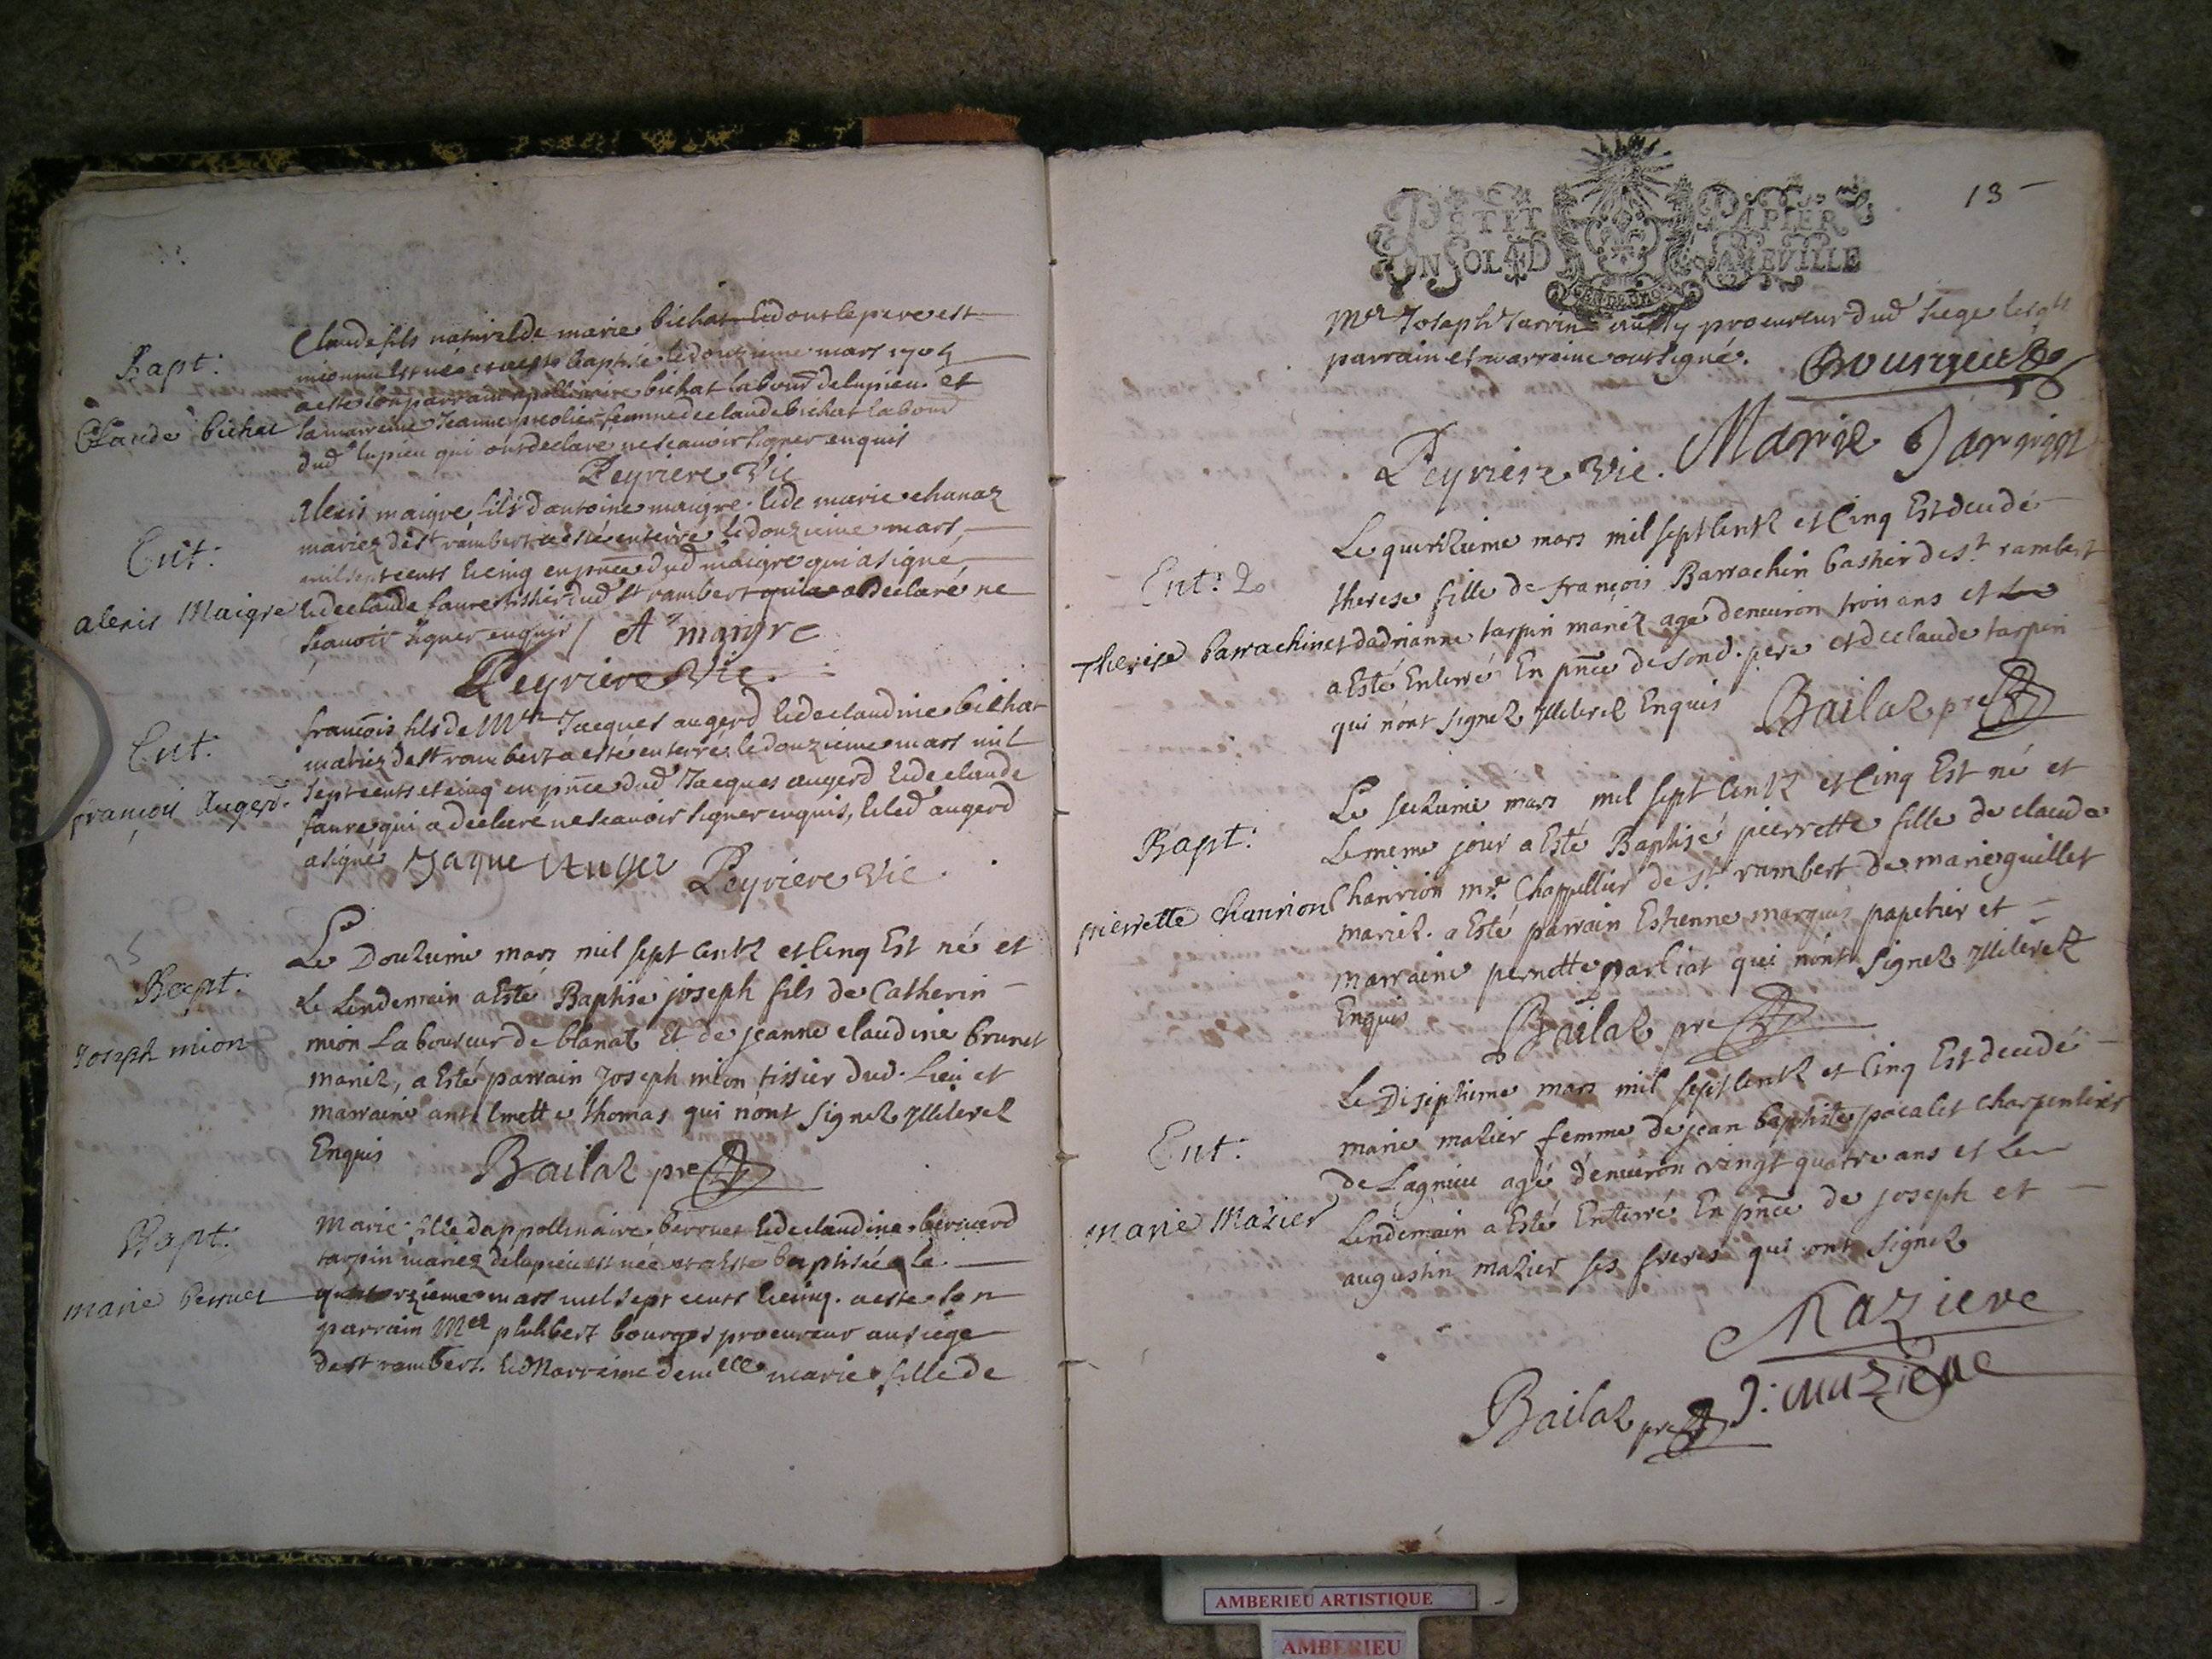 Bapt:
Claude bichat
Claude fils naturel de marie bichat et dont le pere est
inconnu est né et a esté baptisé le douzieme mars 1705
a esté son parrain apollinaire bichat labour de lupieu et
sa marreine Jeanne femme de claude bichat labour
dud lupieu qui ont declaré ne scauoir signer enquis
Peyriere Vic
Ent:
alexis Maigre
alexis maigre fils d'antoine maigre et de marie chanaz
mariez de st rambert a esté enterré le douzieme mars
mil sept cents et cinq en pnce dud maigre qui a signé
et de claude faure tissier dud st rambert qui a declaré ne
scauoir signer enquis / At maigre
Peyriere Vic.
Ent:
françois Augerd.
françois fils de Mtre Jacques augerd et de claudine bichat
mariez de st rambert a esté enterré le douzieme mars mil
sept cents et cinq en pnce dud Jacques augerd et de claude
faure qui a declaré ne scauoir signer enquis, et led augerd
a signé Jaque Auger Peyriere Vic.
Bapt:
Joseph mion
Le Douzieme mars mil sept centz et Cinq Est né et
Le Lendemain a Esté Baptise joseph fils de Catherin
mion Laboureur de blanaz Et de jeanne claudine brunet
mariez, a Esté parrain Joseph mion tissier dud. Lieu et
marraine anthelmette thomas qui n'ont signez Illiterez
Enquis Bailaz pre
Bapt:
marie berruet
Marie fille d'appollinaire berruet et de claudine bernerd
tarpin mariez de lupieu est née et a esté baptisée le
quatorzieme mars mil sept cents et cinq. a esté son
parrain Mer philibert bourges procureur au siege
de st rambert. et Marreine demelle marie fille de
13
PETIT PAPIER
UN SOL 4 D LA FEUILLE
Mer Joseph Jarrin aussy procureur dud siege lesqls
parrain et marraine ont signé. Bourgeus
Peyriere Vic. Marie Jarrin
Ent:
Therese barrachin
Le quinzieme mars mil sept Centz et Cinq Est decedé
therese fille de françois Barrachin bastier de st rambert
et dadrianne tarpin mariez agé denuiron trois ans et
a Esté Enterré En pnce de sond. pere et de claude tarpin
qui n'ont signez Illiterez Enquis Bailaz pre
Bapt:
pierrette chanrion
Le sezieme mars mil sept Centz et Cinq Est né et
Le meme jour a Esté Baptisé pierrette fille de claude
Chanrion mre Chappellier de st rambert de marie guillet
mariez. a Esté parrain Estienne marquis papetier et
marraine pernette parliat qui n'ont signez Illiterez
Enquis Bailaz pre
Ent:
marie Mazier
Le Diseptieme mars mil sept Centz et Cinq Est decedé
marie mazier femme de jean baptiste pacalet charpentier
de Lagnieu agé d'enuiron vingt quatre ans et Le
Lendemain a Esté Enterré En pnce de joseph et
augustin mazier ses freres qui ont signez
Maziere
Bailaz pre J: maziere
AMBERIEU ARTISTIQUE
AMBERIEU